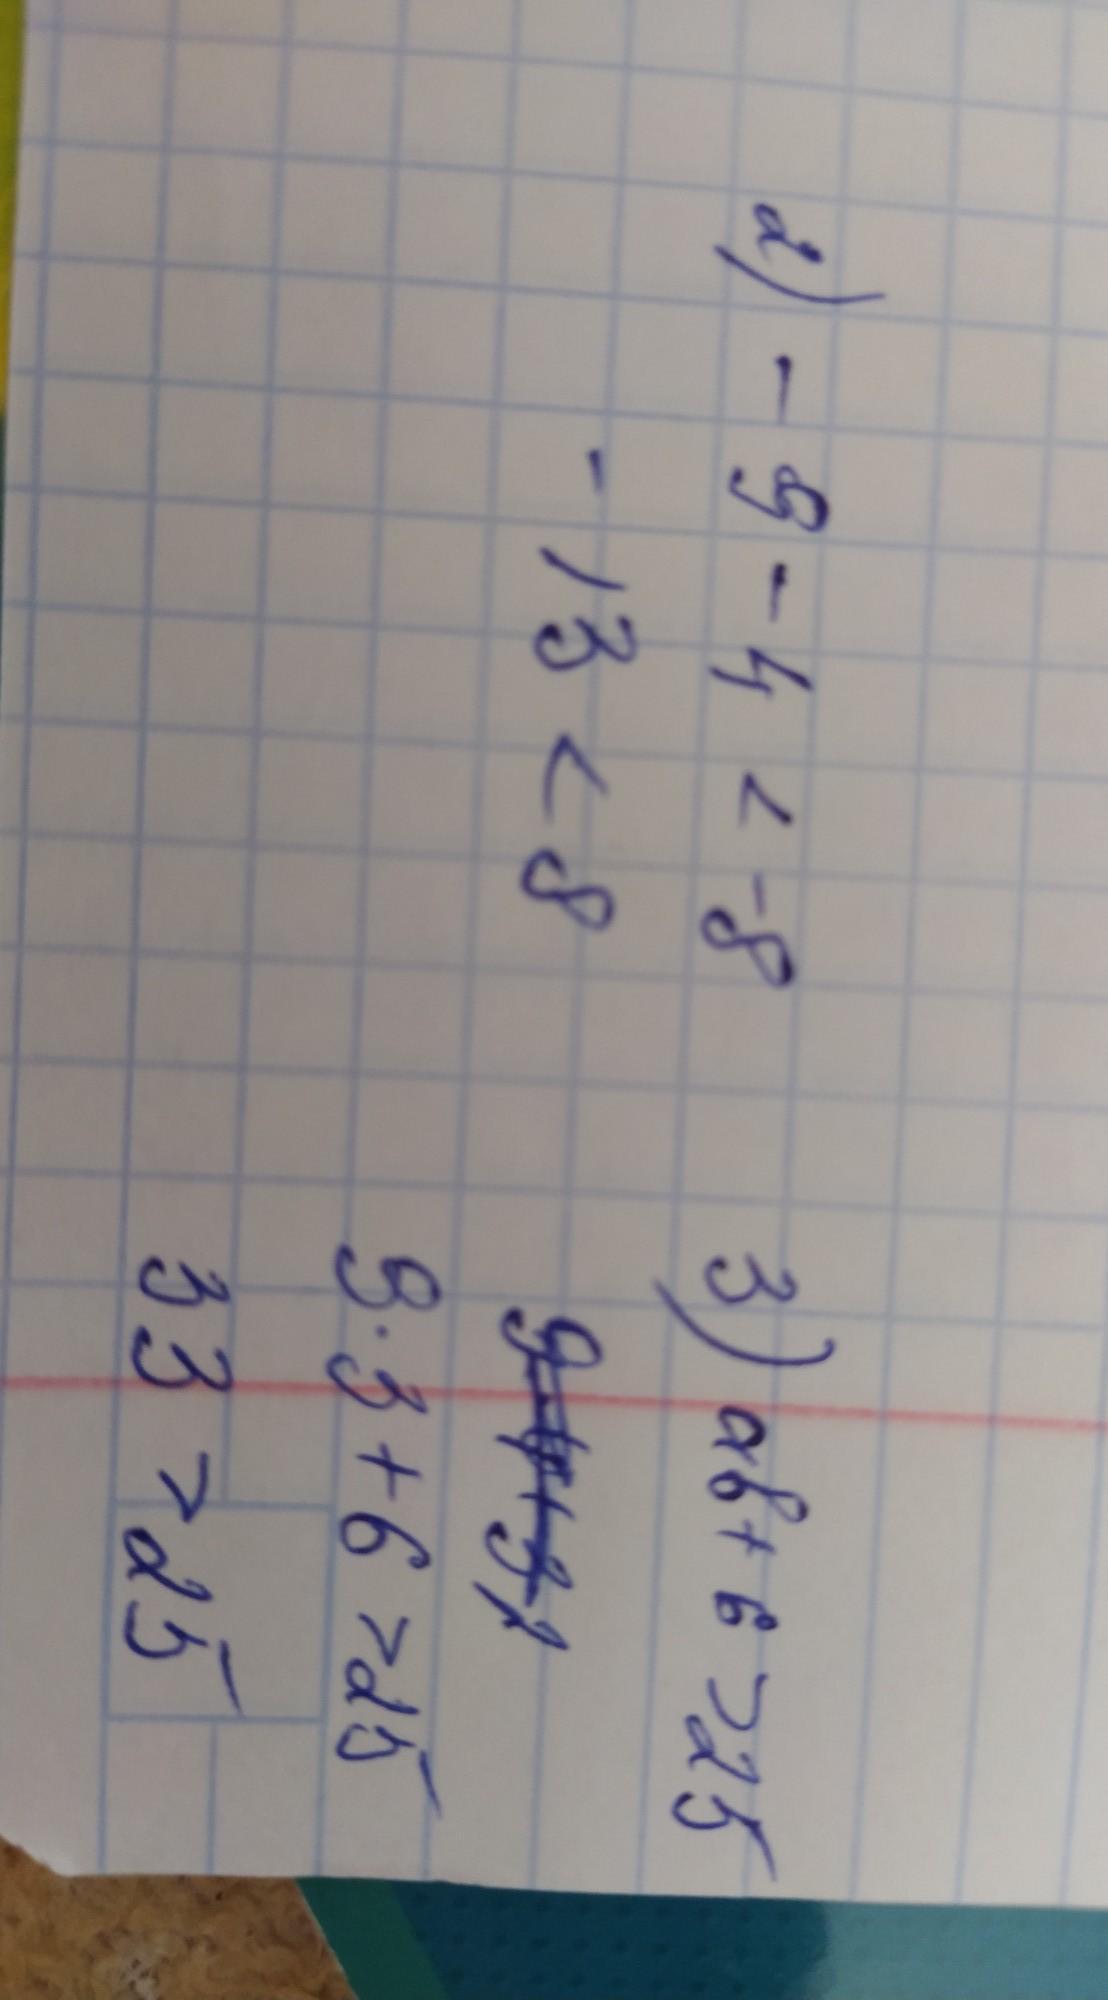 2) - 9 - 4 < -8
- 13 < 8
3) ab + 6 > 25
9 · 3 + 6 > 25
33 > 25